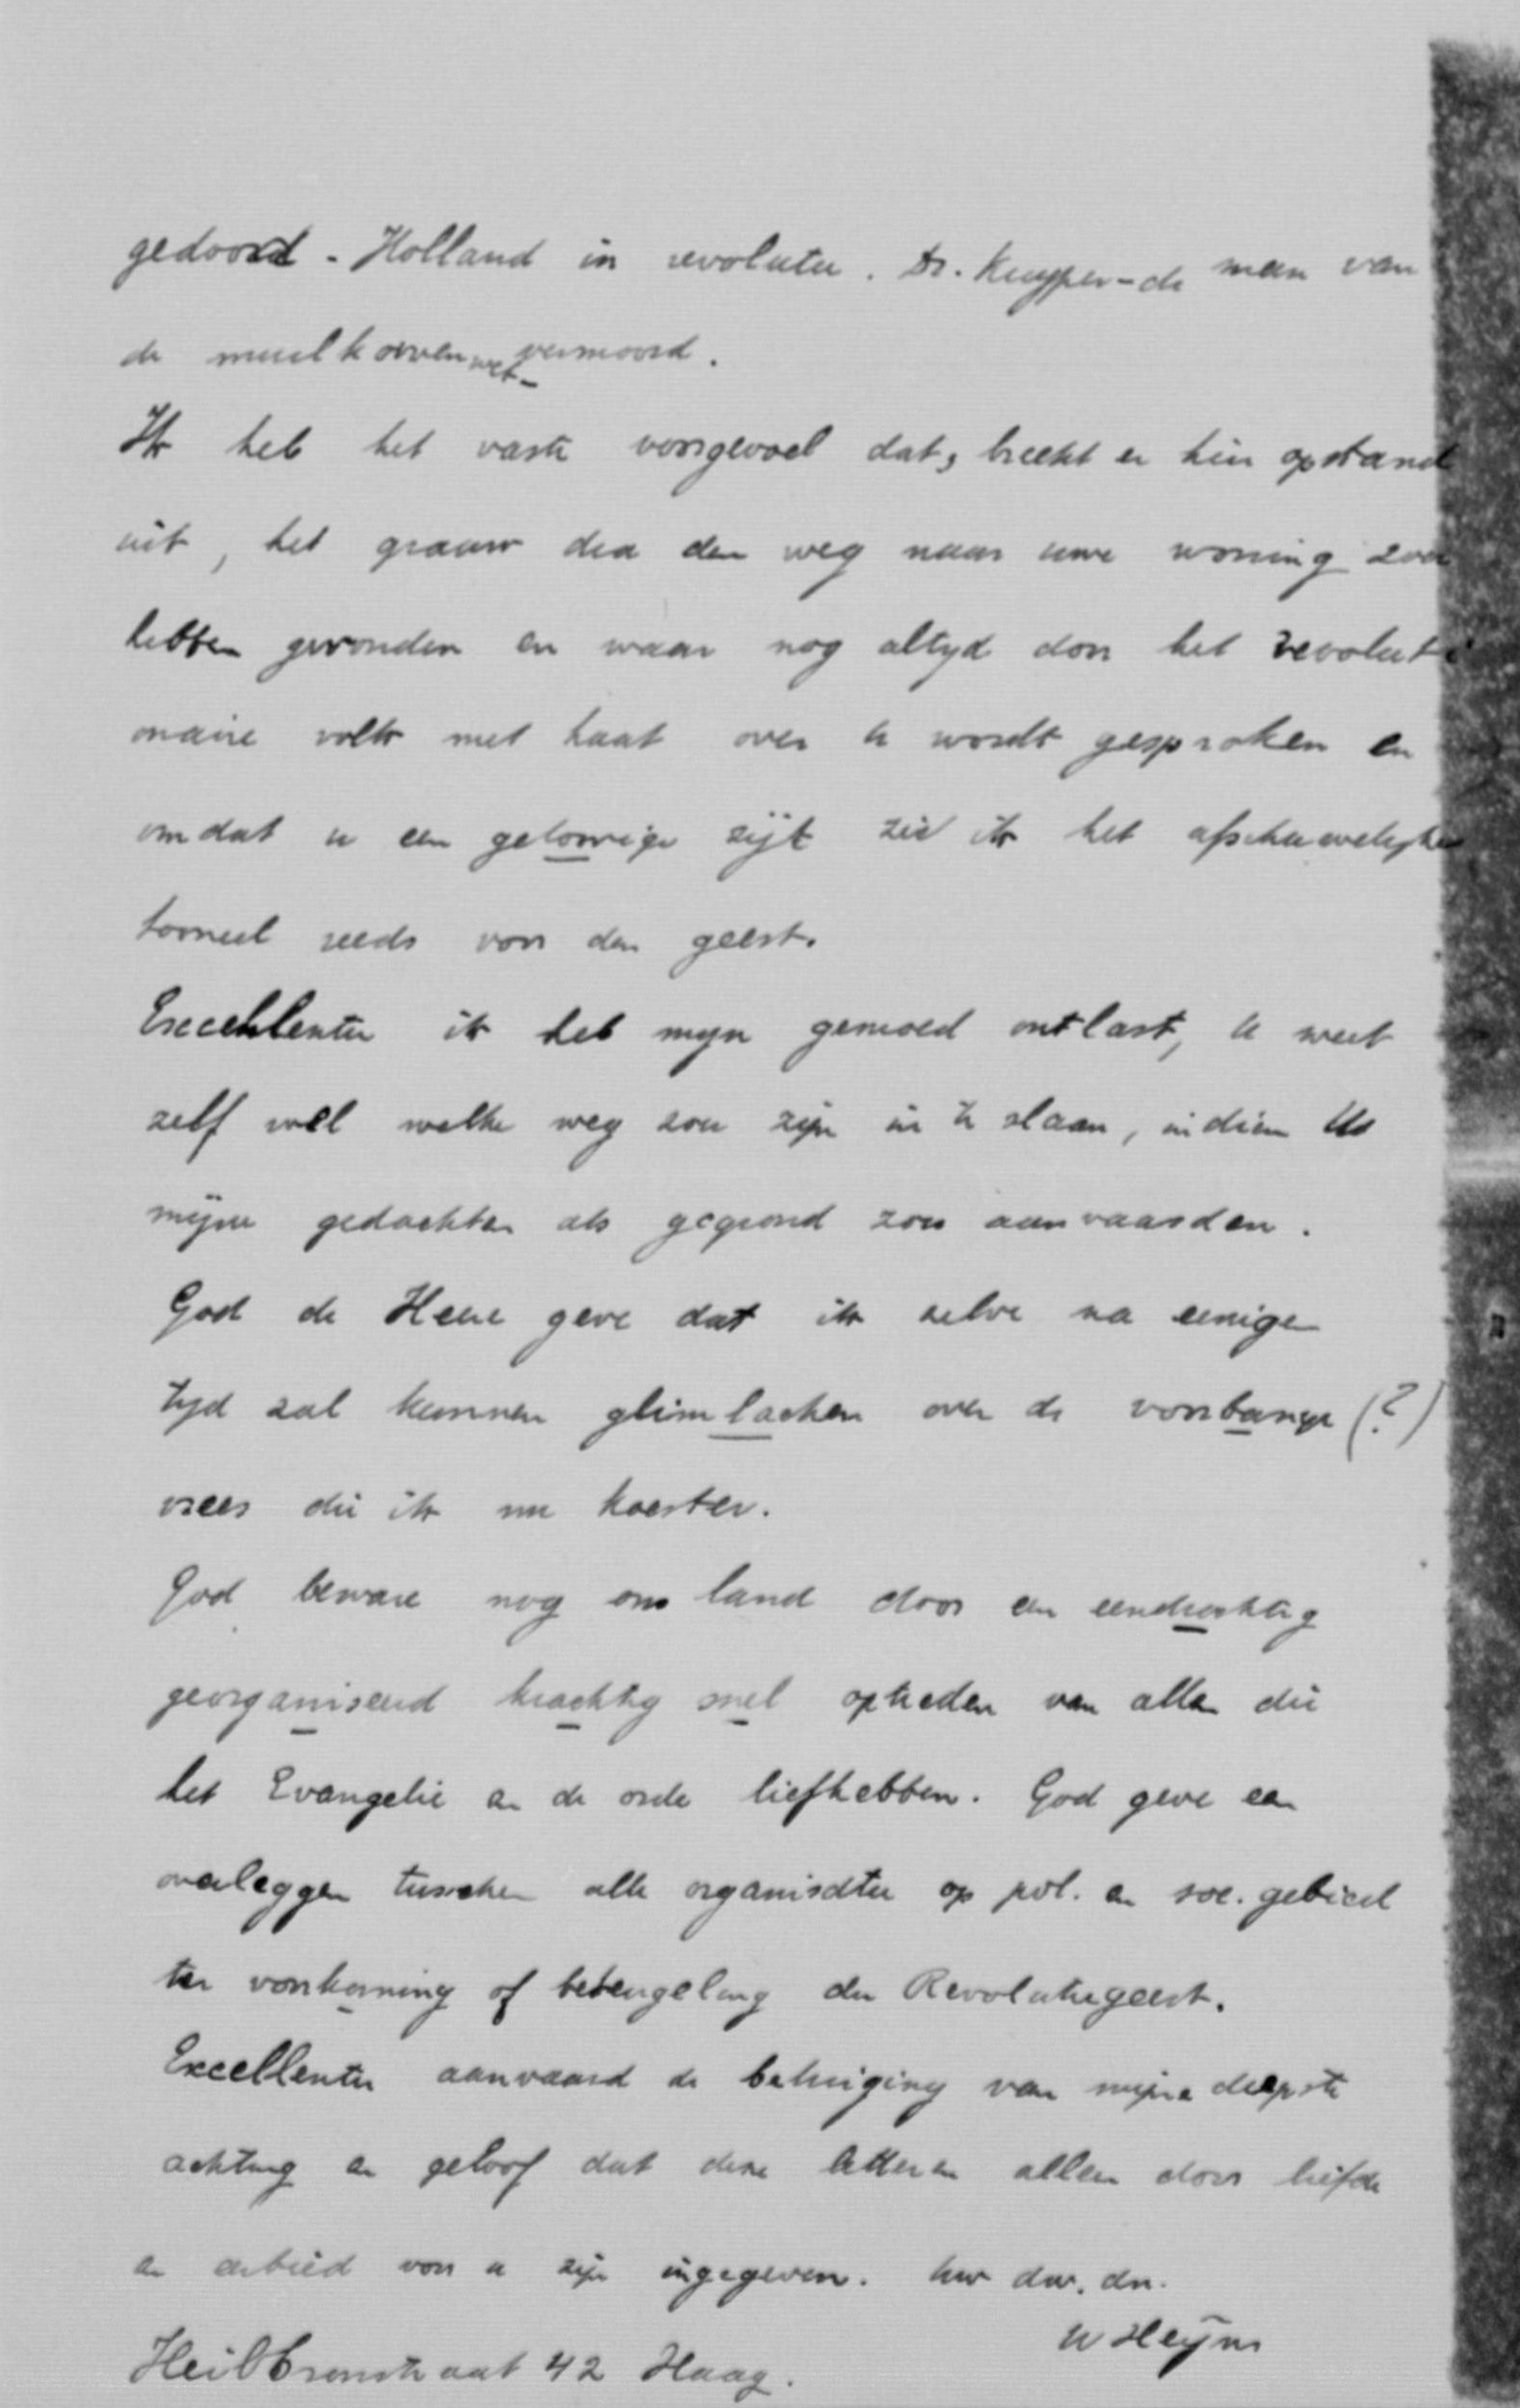 gedoord - Holland in revolutie. Dr. Kuyper - de man van
de muilkorvenwet - vermoord.
Ik heb het vaste voorgevoel dat, breekt er hier opstand
uit, het graauw dra den weg naar uwe woning zou
hebben gevonden en waar nog altyd door het revoluti
onaire volk met haat over u wordt gesproken en
omdat u een geloovige zijt zie ik het afschuwelyke
tooneel reeds voor den geest.
Excellentie ik heb myn gemoed ontlast, u weet
zelf wel welke weg zou zijn in te slaan, indien Us
mijne gedachten als gegrond zou aanvaarden.
God de Heere geve dat ik zelve na eenigen
tyd zal kunnen glimlachen over de voorbarige (?)
vrees die ik nu koester.
God beware nog ons land door een eendrachtig
georganiseerd krachtig snel optreden van allen die
het Evangelie en de orde liefhebben. God geve een
overleggen tusschen alle organisatie op pol. en soc. gebied
ter voorkoming of beteugeling der Revolutiegeest.
Excellentie aanvaard de betuiging van mijne diepste
achting en geloof dat deze letteren alleen door liefde
en eerbied voor u zijn ingegeven. Uw dw. dn.
W Heyns
Heilbronstraat 42 Haag.